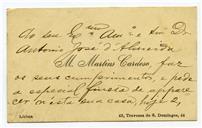 Ao seu Ex.mo Am.o e Sr. Dr.
Antonio José d'Almeida
M. Martins Cardoso, faz
os seus cumprimentos, e pede
a especial fineza de appare-
cer n'esta sua casa, hoje 2,
Lisboa
43, Travessa de S. Domingos, 44